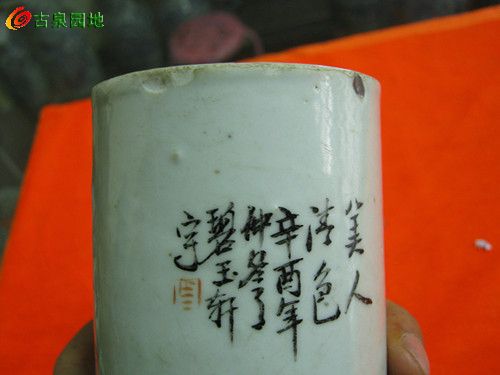 古泉园地
美人
清色
辛酉年
仲冬月
碧玉轩